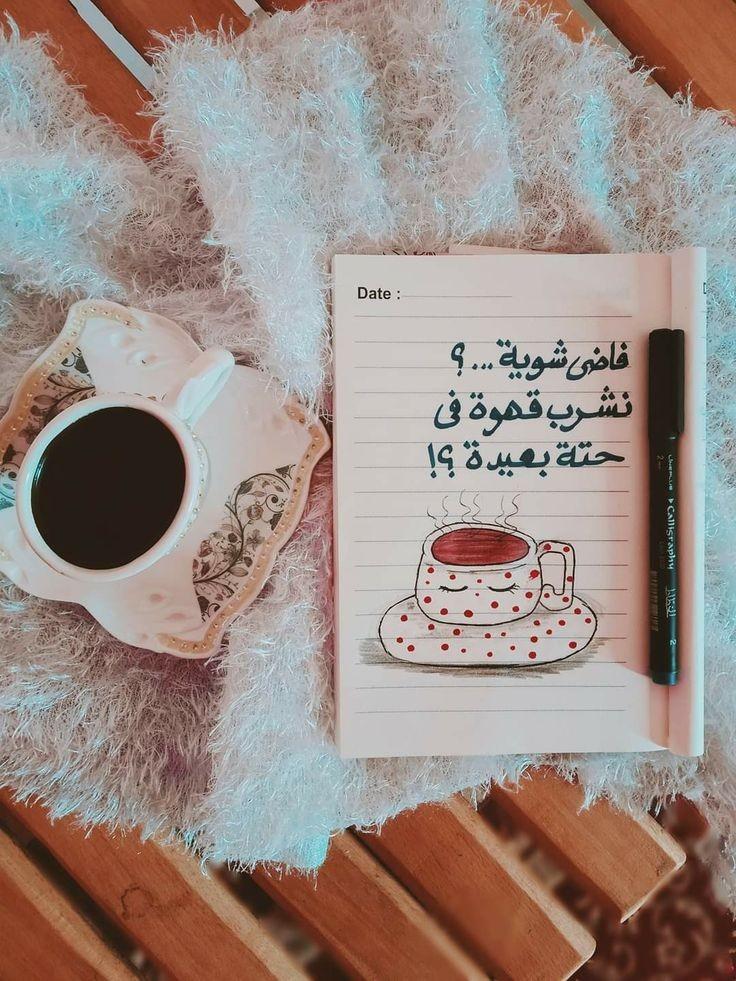 Date :
فاضى شوية ... ؟
نشرب قهوة فى
حتة بعيدة ؟!
Calligraphy
2